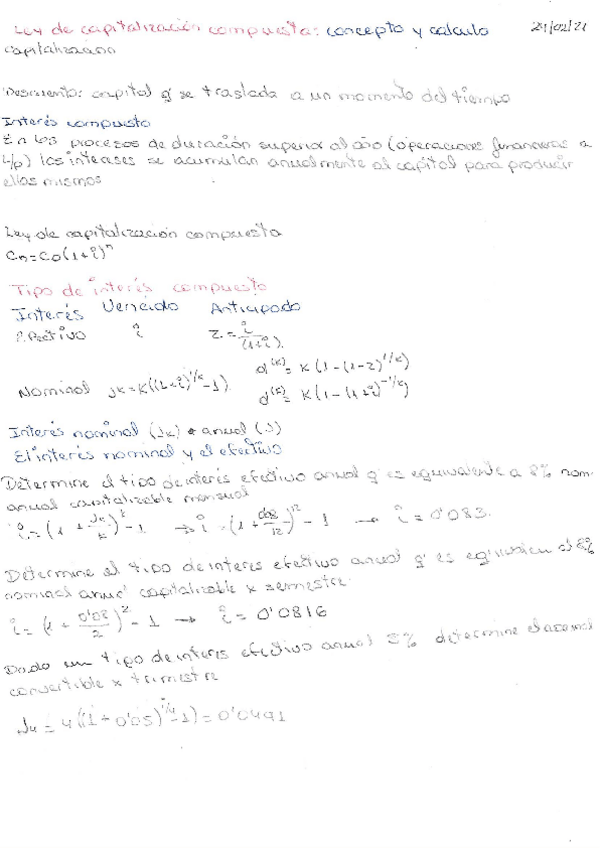 Ley de capitalización compuesta: concepto y calculo 24/02/21
Capitalización
Descuento: capital q' se traslada a un momento del tiempo
Interés compuesto
En los procesos de duración superior al año (operaciones financieras a
L/p) los intereses se acumulan anualmente al capital para producir
ellos mismos
Ley de capitalización compuesta
Cn=Co(1+i)^n
Tipo de interés compuesto
Interés Vencido Anticipado
Efectivo i z=i/(1+i)
d^(k)=k(1-(1-z)^1/k)
Nominal jk=k((1+i)^1/k-1) d^(k)=k(1-(1+i)^-1/k)
Interés nominal (Jk) anual (J)
El interés nominal y el efectivo
Determine el tipo de interés efectivo anual q' es equivalente a 8% nom-
anual capitalizable mensual
i=(1+jk/k)^k-1 → i=(1+0'08/12)^12-1 → i=0'083.
Determine el tipo de interes efectivo anual q' es al 8%
nominal anual capitalizable x semestre
i=(1+0'08/2)^2-1 → i=0'0816
Dado un tipo de interes efectivo anual 8% determine el
convertible x trimestre
J4=4((1+0'05)^1/4-1)=0'0491